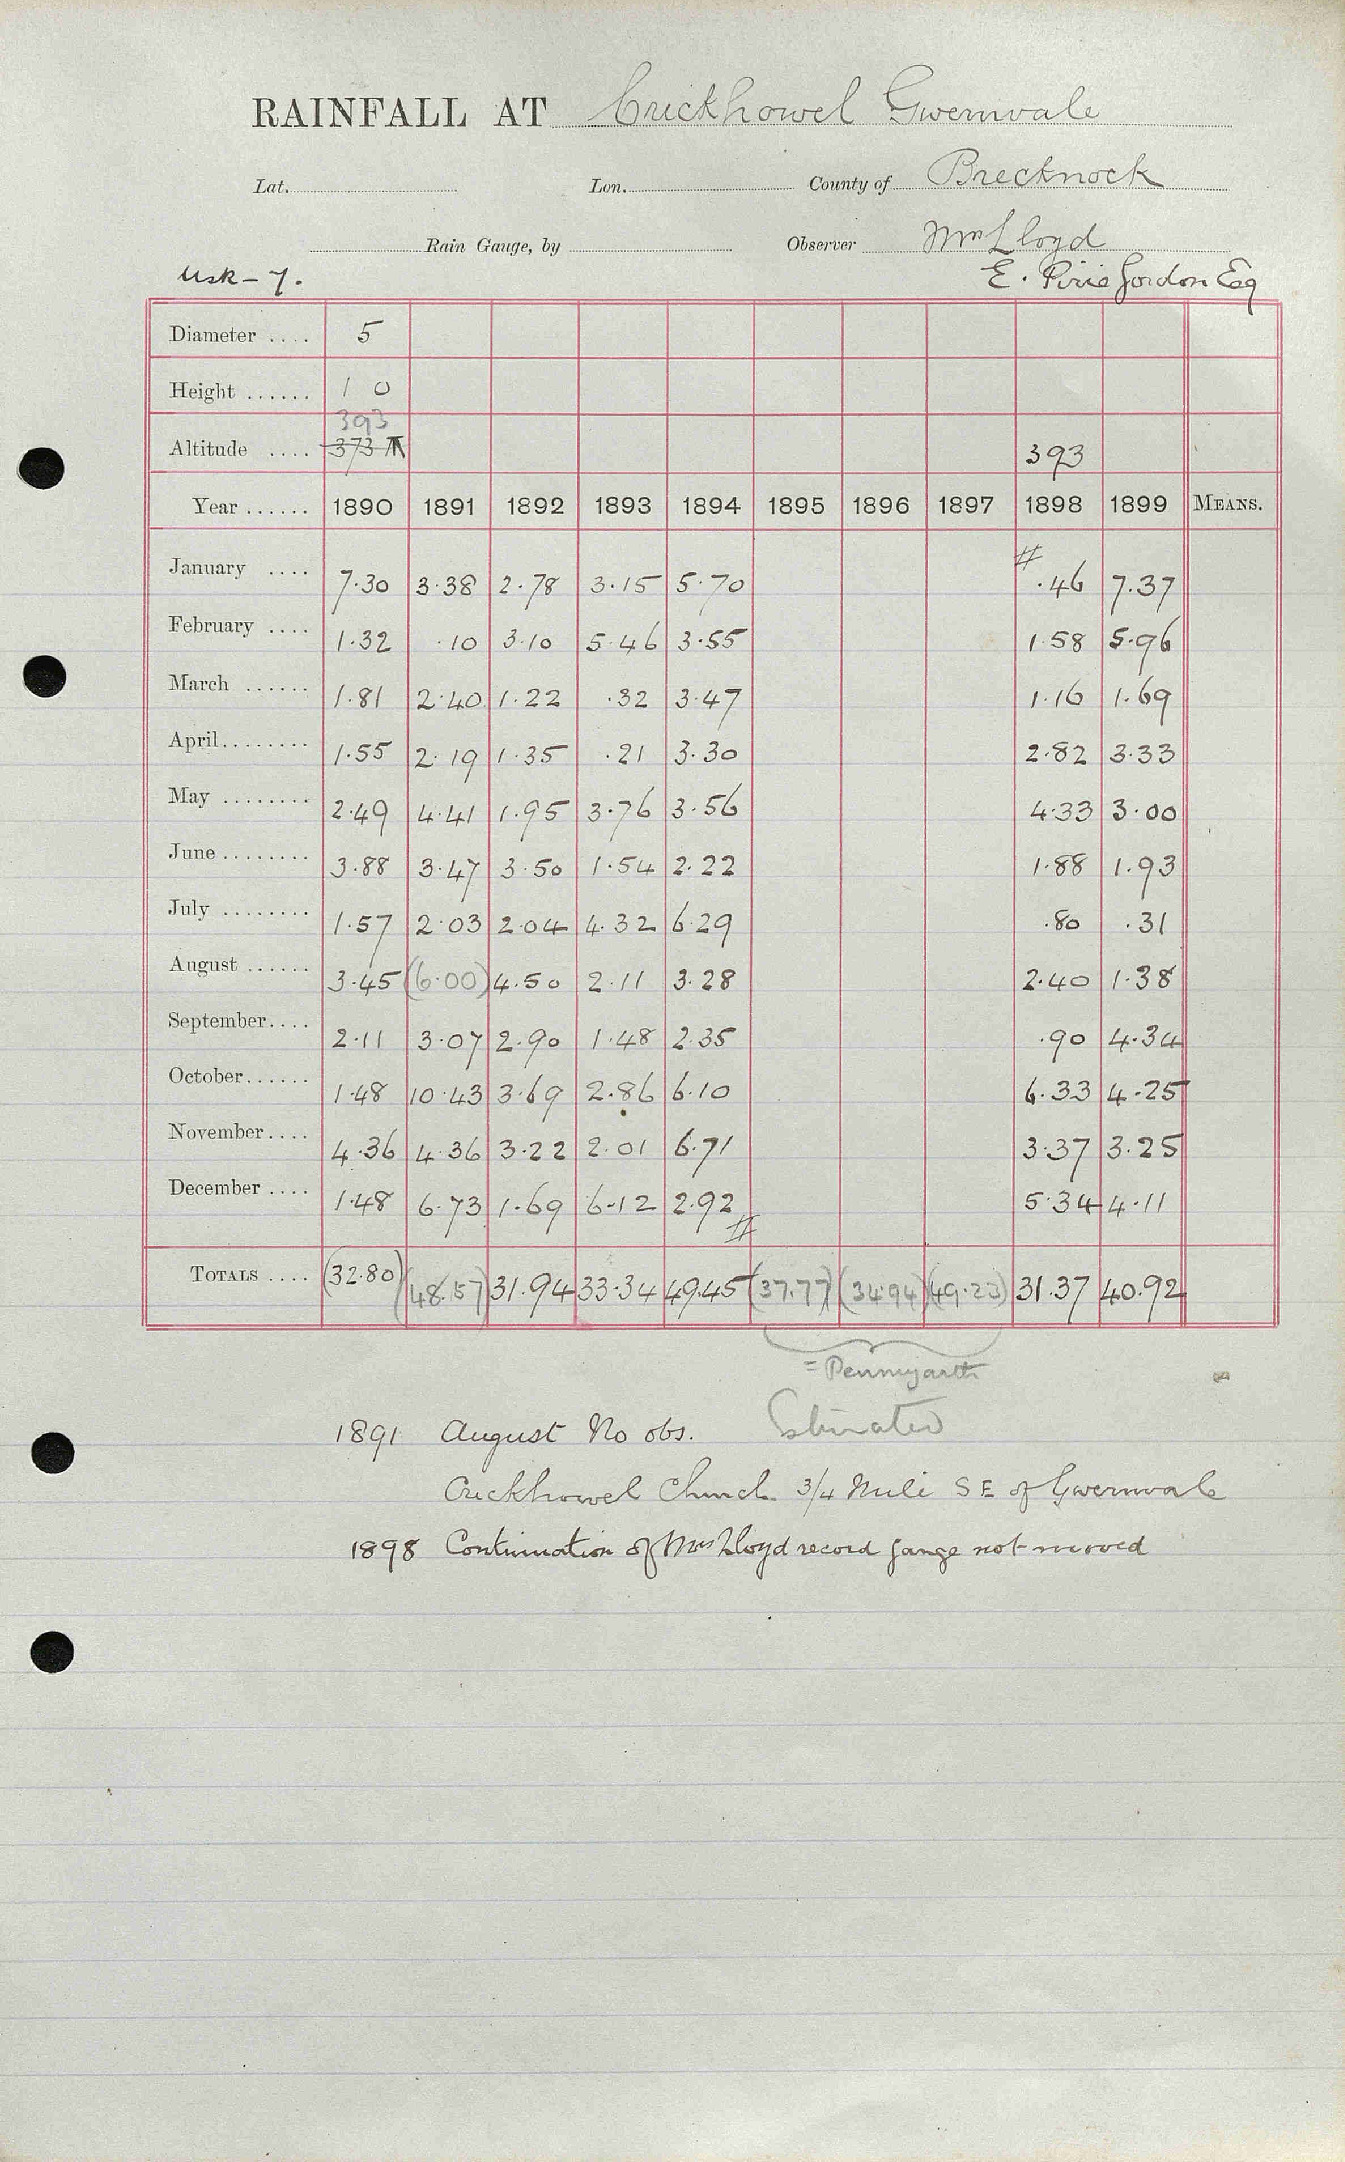 RAINFALL AT Crickhowel Gwernvale
Lat. Lon. County of Brecknock
Rain Gauge, by Observer Mrs Lloyd
Usk - 7. E. Pirie Gordon Esq
Diameter .... 5
Height ...... 1 0
393
Altitude .... 373 393
Year ...... 1890 1891 1892 1893 1894 1895 1896 1897 1898 1899 MEANS.
January .... 7.30 3.38 2.78 3.15 5.70 # .46 7.37
February .... 1.32 .10 3.10 5.46 3.55 1.58 5.96
March ...... 1.81 2.40 1.22 .32 3.47 1.16 1.69
April........ 1.55 2.19 1.35 .21 3.30 2.82 3.33
May ........ 2.49 4.41 1.95 3.76 3.56 4.33 3.00
June ........ 3.88 3.47 3.50 1.54 2.22 1.88 1.93
July ........ 1.57 2.03 2.04 4.32 6.29 .80 .31
August ...... 3.45 (6.00) 4.50 2.11 3.28 2.40 1.38
September.... 2.11 3.07 2.90 1.48 2.35 .90 4.34
October...... 1.48 10.43 3.69 2.86 6.10 6.33 4.25
November.... 4.36 4.36 3.22 2.01 6.71 3.37 3.25
December .... 1.48 6.73 1.69 6.12 2.92 # 5.34 4.11
TOTALS .... (32.80) (48.57) 31.94 33.34 49.45 (37.77) (34.94) (49.23) 31.37 40.92
= Penmyarth
1891 August No obs. Estimated
Crickhowel Church 3/4 Mile SE of Gwernvale
1898 Continuation of Mrs Lloyd record gauge not moved